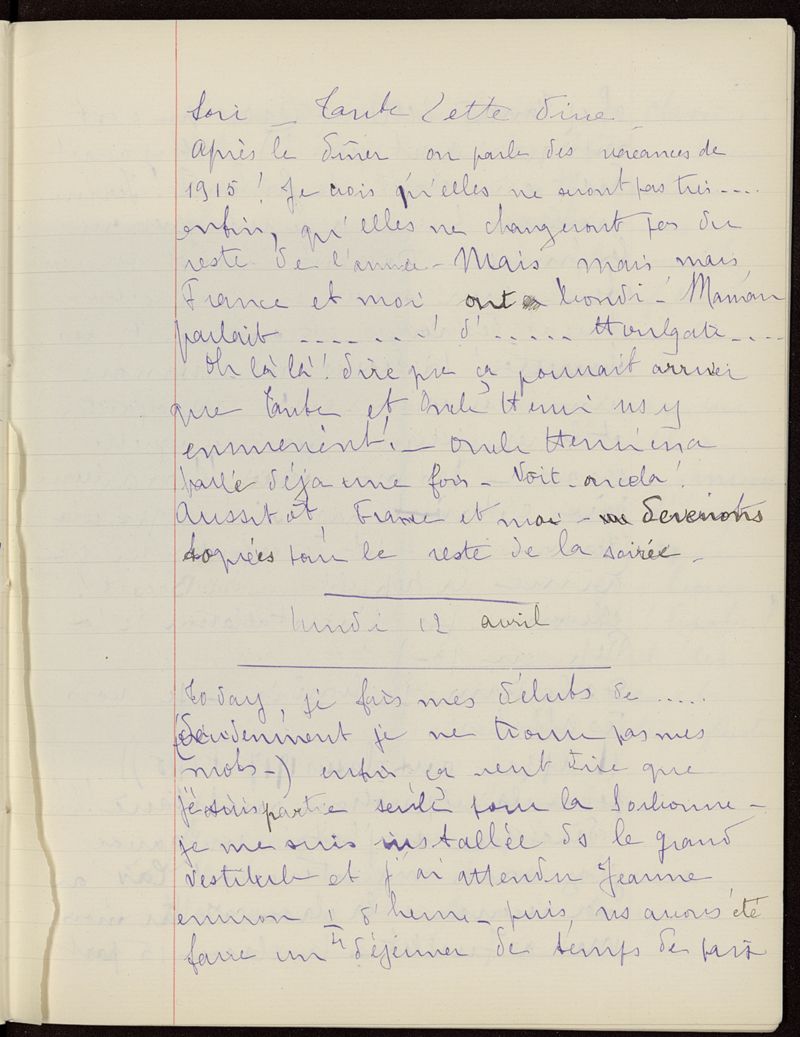 soir _ Tante Cette dîne
Après le dîner on parle des vacances de
1915! Je crois qu'elles ne seront pas très ....
enfin, qu'elles ne changeront pas du
reste de l'année - Mais mais mais
France et moi ont bondi - ! Maman
parlait ........! d' ..... Houlgate ....
Oh là là! dire que ça pourrait arriver
que Tante et Oncle Henri ns y
emmenent! - Oncle Henri en a
parlé déjà une fois - Voit-on cela!
Aussitot, France et moi - devenons
toquées pour le reste de la soirée -
Lundi 12 avril
Today, je fais mes débuts de .....
(Evidemment je ne trouve pas mes
mots -) enfin ça veut dire que
je suis partie seule pour la Sorbonne -
je me suis installée ds le grand
vestibule et j'ai attendu Jeanne
environ 1/4 d'heure - puis, ns avons été
faire un déjeuner de temps de paix